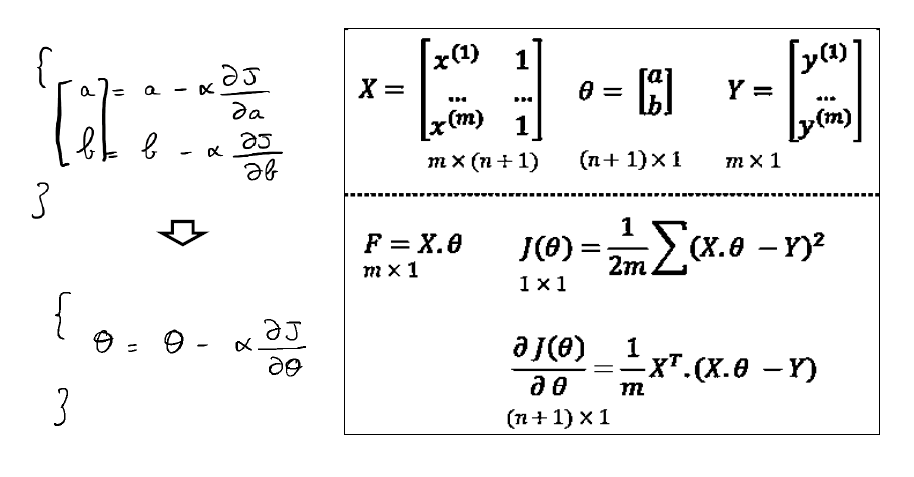 {
[a] = a - α ∂J/∂a
[b] = b - α ∂J/∂b
}
{
θ = θ - α ∂J/∂θ
}
X = [x^(1) 1
... ...
x^(m) 1]
m × (n + 1)
θ = [a
b]
(n + 1) × 1
Y = [y^(1)
...
y^(m)]
m × 1
F = X.θ
m × 1
J(θ) = 1/2m ∑(X.θ − Y)^2
1 × 1
∂ J(θ)/∂ θ = 1/m X^T.(X.θ − Y)
(n + 1) × 1